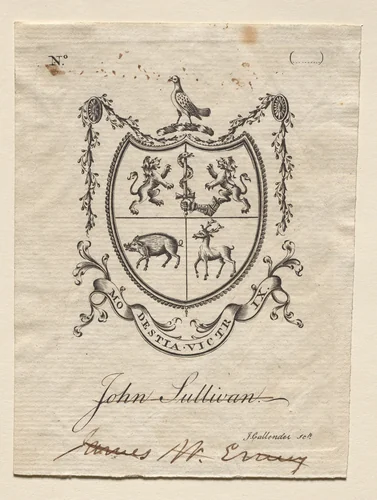 N.º (.........)
MODESTIA · VICTRIX.
John Sullivan.
J. Callender Sct.
James W.